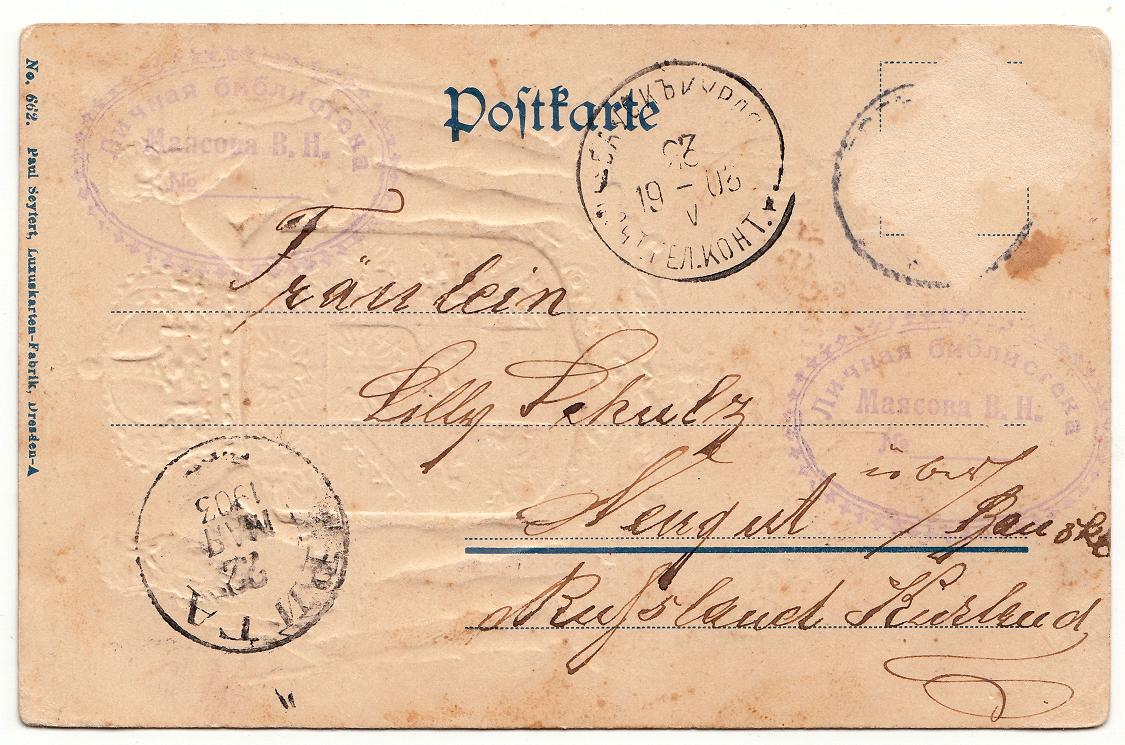 Postkarte
No. 662. Paul Seytert, Luxuskarten-Fabrik, Dresden-A
Личная библиотека
Маясова В. Н.
№
23
19 - 03
V
ПОЧТ.ТЕЛ.КОНТ.
Fräulein
Lilly Schulz
Neugut über / Bauske
Russland Kurland
Личная библиотека
Маясова В. Н.
№
22
МАЯ
1903